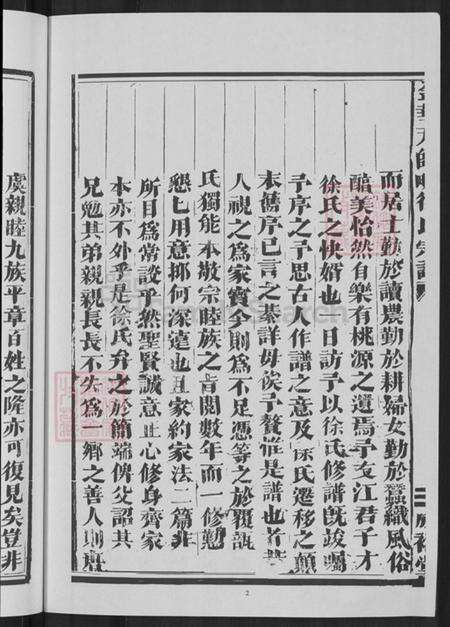 而居士勤於讀農勤於耕婦女勤於蠶織風俗
醕美怡然自樂有桃源之遺焉予友江君子才
徐氏之快婿也一日訪予以徐氏修譜旣竣囑
予序之予思古人作譜之意及徐氏遷移之顛
末舊序已言之綦詳毋俟予贅惟是譜也
人視之爲家寶今則爲不足憑等之於覆瓿
氏獨能本敬宗睦族之旨閱數年而一修勤
懇已用意抑何深遠也且家約家法二篇非
所目爲常談乎然聖賢誠意正心修身齊家
本亦不外乎是徐氏弁之於簡端俾父詔其
兄勉其弟親親長長不失爲一鄉之善人則
虞親睦九族平章百姓之隆亦可復見矣豈非
2